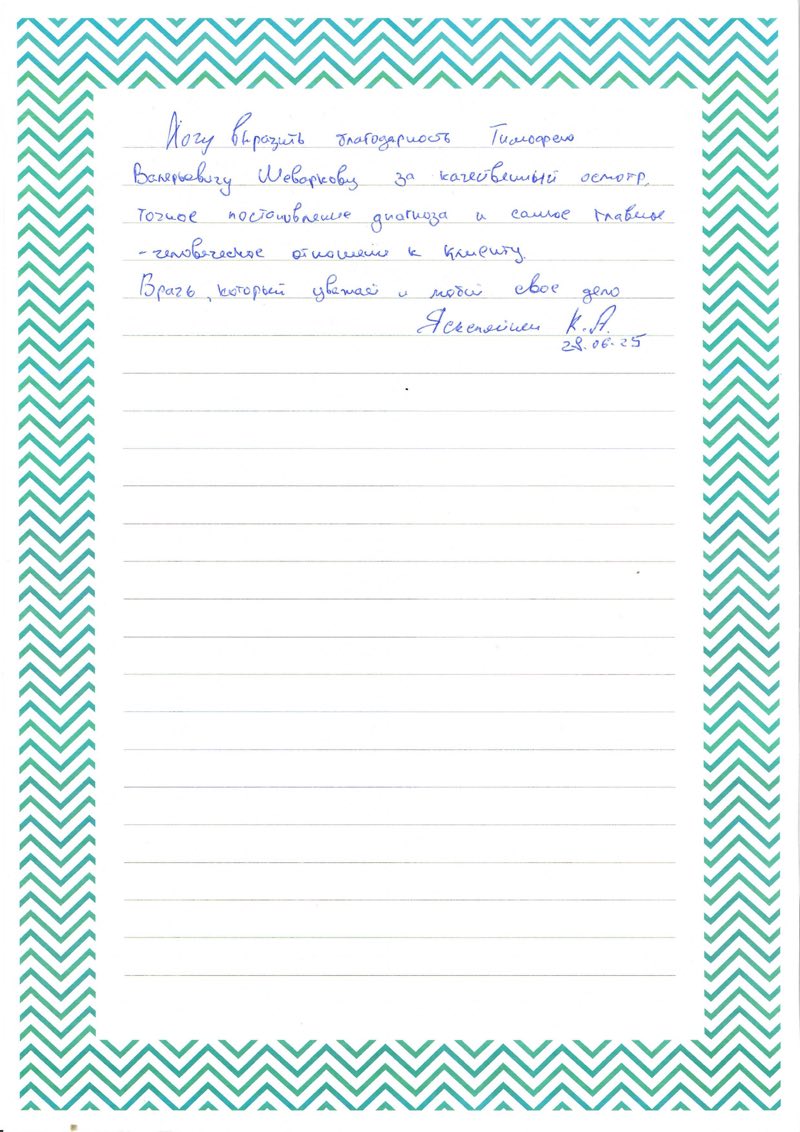 Хочу выразить благодарность Тимофею
Валерьевичу Шеваркову за качественный осмотр,
точное постановление диагноза и самое главное
- человеческое отношение к клиенту.
Врачь, который уважает и любит свое дело
К. А.
28.06.25